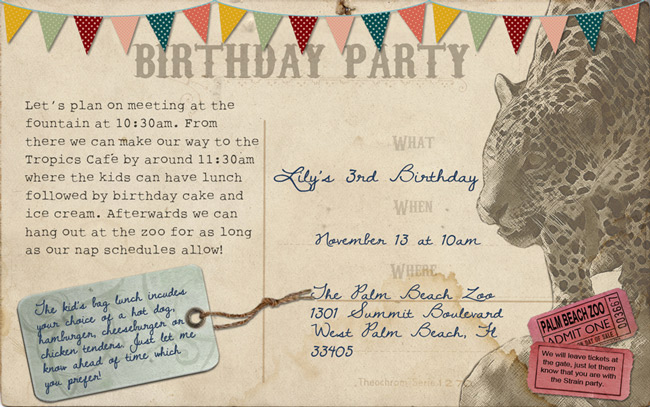 BIRTHDAY PARTY
Let's plan on meeting at the
fountain at 10:30am. From
there we can make our way to the
Tropics Cafe by around 11:30am
where the kids can have lunch
followed by birthday cake and
ice cream. Afterwards we can
hang out at the zoo for as long
as our nap schedules allow!
WHAT
Lily's 3rd Birthday
WHEN
November 13 at 10am
WHERE
The Palm Beach Zoo
1301 Summit Boulevard
West Palm Beach, Fl
33405
The kid's bag lunch incudes
your choice of a hot dog,
hamburger, cheeseburger or
chicken tenders. Just let me
know ahead of time which
you prefer!
PALM BEACH ZOO
ADMIT ONE
DAY OF SALE
We will leave tickets at
the gate, just let them
know that you are with
the Strain party.